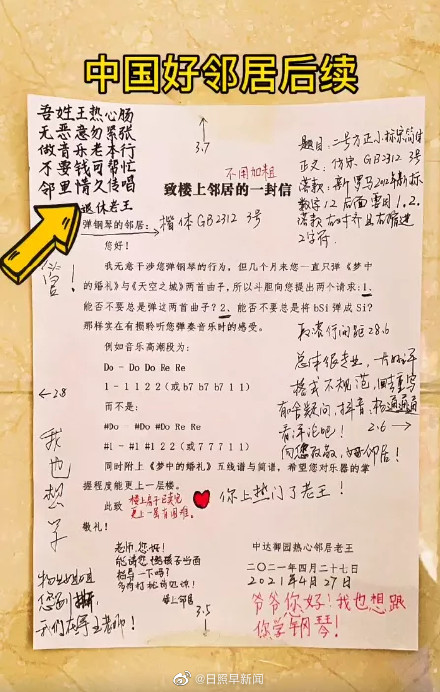 中国好邻居后续
吾姓王热心肠
无恶意勿紧张
做音乐老本行
不要钱可帮忙
邻里情又传唱
退休老王
3.7
题目:二号方正小标宋简体
正文:仿宋GB2312 3号
落款:新罗马
数字1.2后面需用1.2.
落款右对齐且右缩进
2字符.
不用加粗
致楼上邻居的一封信
弹钢琴的邻居:
楷体GB2312 3号
您好!
我无意干涉您弹钢琴的行为,但几个月来您一直只弹《梦中
的婚礼》与《天空之城》两首曲子,所以斗胆向您提出两个请求:1、
能否不要总是弹这两首曲子?2、能否不要总是将bSi弹成Si?
那样实在有损聆听您弹奏音乐时的感受。
例如音乐高潮段为:
Do - Do Do Re Re
1 - 1 1 2 2(或 b7 b7 b7 1 1)
而不是:
#Do - #Do #Do Re Re
#1 - #1 #1 2 2(或 7 7 7 1 1)
同时附上《梦中的婚礼》五线谱与简谱。希望您对乐器的掌
握程度能更上一层楼。
此致
敬礼!
楼上房子已卖完
更上一层有困难。
行间距28.6
总体很专业,
格式不规范,
有啥疑问,抖音
看评论吧!
向您致敬,好邻居!
2.6
2.8
我也想学
你上热门了老王!
中达御园热心邻居老王
二〇二一年四月二十七日
2021年4月27日
老师,您好!
能请您
指导一下吗?
楼上邻居
爷爷你好!我也想跟
你学钢琴!
我们在学王老师!
3.5
@日照早新闻